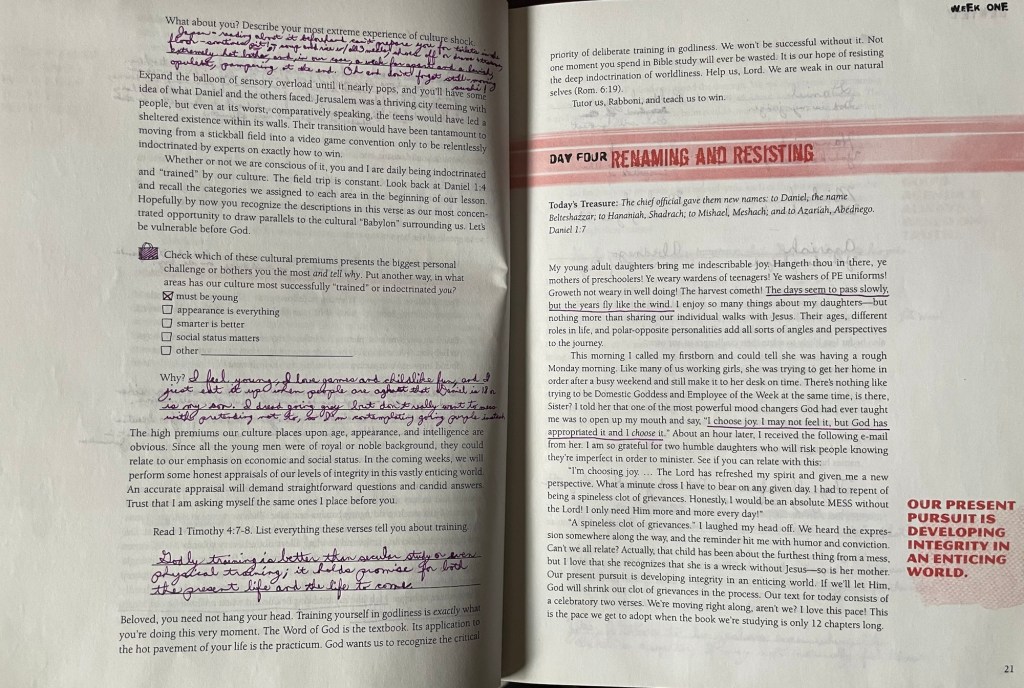 What about you? Describe your most extreme experience of culture shock.
Japan - reading about it beforehand can't prepare you for toilets in the
floor
extremely hot baths and in our case, a week
opulent, pampering at the end. Oh and don't forget still-moving
sushi!
Expand the balloon of sensory overload until it nearly pops, and you'll have some
idea of what Daniel and the others faced. Jerusalem was a thriving city teeming with
people, but even at its worst, comparatively speaking, the teens would have led a
sheltered existence within its walls. Their transition would have been tantamount to
moving from a stickball field into a video game convention only to be relentlessly
indoctrinated by experts on exactly how to win.
Whether or not we are conscious of it, you and I are daily being indoctrinated
and "trained" by our culture. The field trip is constant. Look back at Daniel 1:4
and recall the categories we assigned to each area in the beginning of our lesson.
Hopefully by now you recognize the descriptions in this verse as our most concen-
trated opportunity to draw parallels to the cultural "Babylon" surrounding us. Let's
be vulnerable before God.
Check which of these cultural premiums presents the biggest personal
challenge or bothers you the most and tell why. Put another way, in what
areas has our culture most successfully "trained" or indoctrinated you?
must be young
appearance is everything
smarter is better
social status matters
other
Why? I feel young, I love games and childlike fun, and I
just eat it up when people are aghast that Daniel is
is my son. I dread going grey but don't really want to mess
with pretending not to, so I'm contemplating going purple instead
The high premiums our culture places upon age, appearance, and intelligence are
obvious. Since all the young men were of royal or noble background, they could
relate to our emphasis on economic and social status. In the coming weeks, we will
perform some honest appraisals of our levels of integrity in this vastly enticing world.
An accurate appraisal will demand straightforward questions and candid answers.
Trust that I am asking myself the same ones I place before you.
Read 1 Timothy 4:7-8. List everything these verses tell you about training.
Godly training is better than secular study or even
physical training; it holds promise for both
the present life and the life to come.
Beloved, you need not hang your head. Training yourself in godliness is exactly what
you're doing this very moment. The Word of God is the textbook. Its application to
the hot pavement of your life is the practicum. God wants us to recognize the critical
WEEK ONE
priority of deliberate training in godliness. We won't be successful without it. Not
one moment you spend in Bible study will ever be wasted. It is our hope of resisting
the deep indoctrination of worldliness. Help us, Lord. We are weak in our natural
selves (Rom. 6:19).
Tutor us, Rabboni, and teach us to win.
DAY FOUR RENAMING AND RESISTING
Today's Treasure: The chief official gave them new names: to Daniel, the name
Belteshazzar; to Hananiah, Shadrach; to Mishael, Meshach; and to Azariah, Abednego.
Daniel 1:7
My young adult daughters bring me indescribable joy. Hangeth thou in there, ye
mothers of preschoolers! Ye weary wardens of teenagers! Ye washers of PE uniforms!
Groweth not weary in well doing! The harvest cometh! The days seem to pass slowly,
but the years fly like the wind. I enjoy so many things about my daughters—but
nothing more than sharing our individual walks with Jesus. Their ages, different
roles in life, and polar-opposite personalities add all sorts of angles and perspectives
to the journey.
This morning I called my firstborn and could tell she was having a rough
Monday morning. Like many of us working girls, she was trying to get her home in
order after a busy weekend and still make it to her desk on time. There's nothing like
trying to be Domestic Goddess and Employee of the Week at the same time, is there,
Sister? I told her that one of the most powerful mood changers God had ever taught
me was to open up my mouth and say, "I choose joy. I may not feel it, but God has
appropriated it and I choose it." About an hour later, I received the following e-mail
from her. I am so grateful for two humble daughters who will risk people knowing
they're imperfect in order to minister. See if you can relate with this:
"I'm choosing joy. … The Lord has refreshed my spirit and given me a new
perspective. What a minute cross I have to bear on any given day. I had to repent of
being a spineless clot of grievances. Honestly, I would be an absolute MESS without
the Lord! I only need Him more and more every day!"
"A spineless clot of grievances." I laughed my head off. We heard the expres-
sion somewhere along the way, and the reminder hit me with humor and conviction.
Can't we all relate? Actually, that child has been about the furthest thing from a mess,
but I love that she recognizes that she is a wreck without Jesus—so is her mother.
Our present pursuit is developing integrity in an enticing world. If we'll let Him,
God will shrink our clot of grievances in the process. Our text for today consists of
a celebratory two verses. We're moving right along, aren't we? I love this pace! This
is the pace we get to adopt when the book we're studying is only 12 chapters long.
OUR PRESENT
PURSUIT IS
DEVELOPING
INTEGRITY IN
AN ENTICING
WORLD.
21